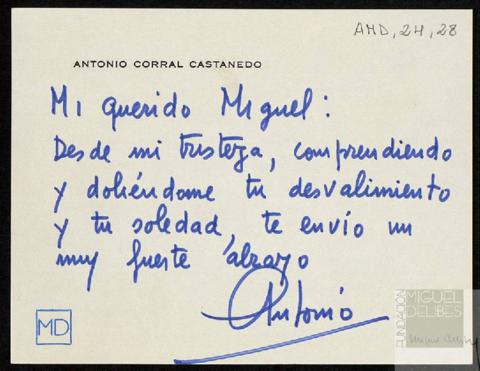 AMD, 24, 28
ANTONIO CORRAL CASTANEDO
Mi querido Miguel:
Desde mi tristeza, comprendiendo
y doliéndome tu desvalimiento
y tu soledad, te envío un
muy fuerte abrazo
Antonio
MD
FUNDACIÓN
MIGUEL
DELIBES